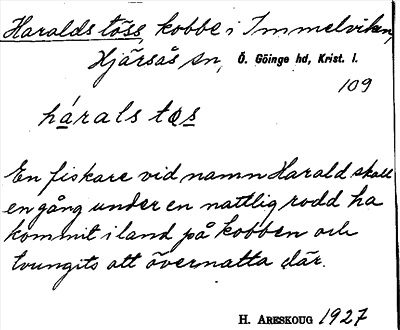 Haralds töss, kobbe i Immelviken,
Hjärsås sn, Ö. Göinge hd, Krist. l.
109
hárals tøs
En fiskare vid namn Harald skall
en gång under en nattlig rodd ha
kommit i land på kobben och
tvungits att övernatta där.
H. Areskoug 1927